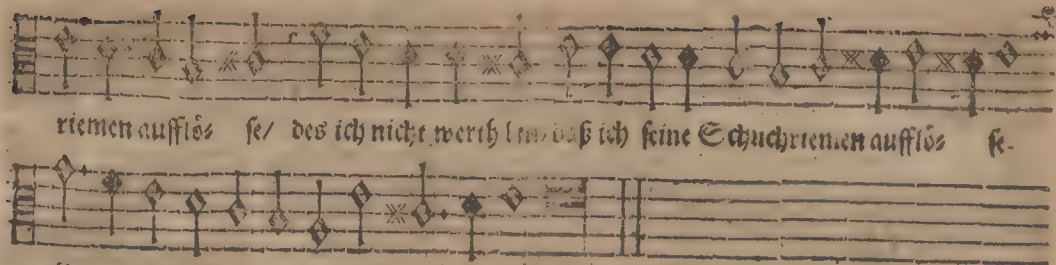 riemen aufflö⸗ se/ des ich nicht werth bin/ daß ich seine Schuchriemen aufflö⸗ se.